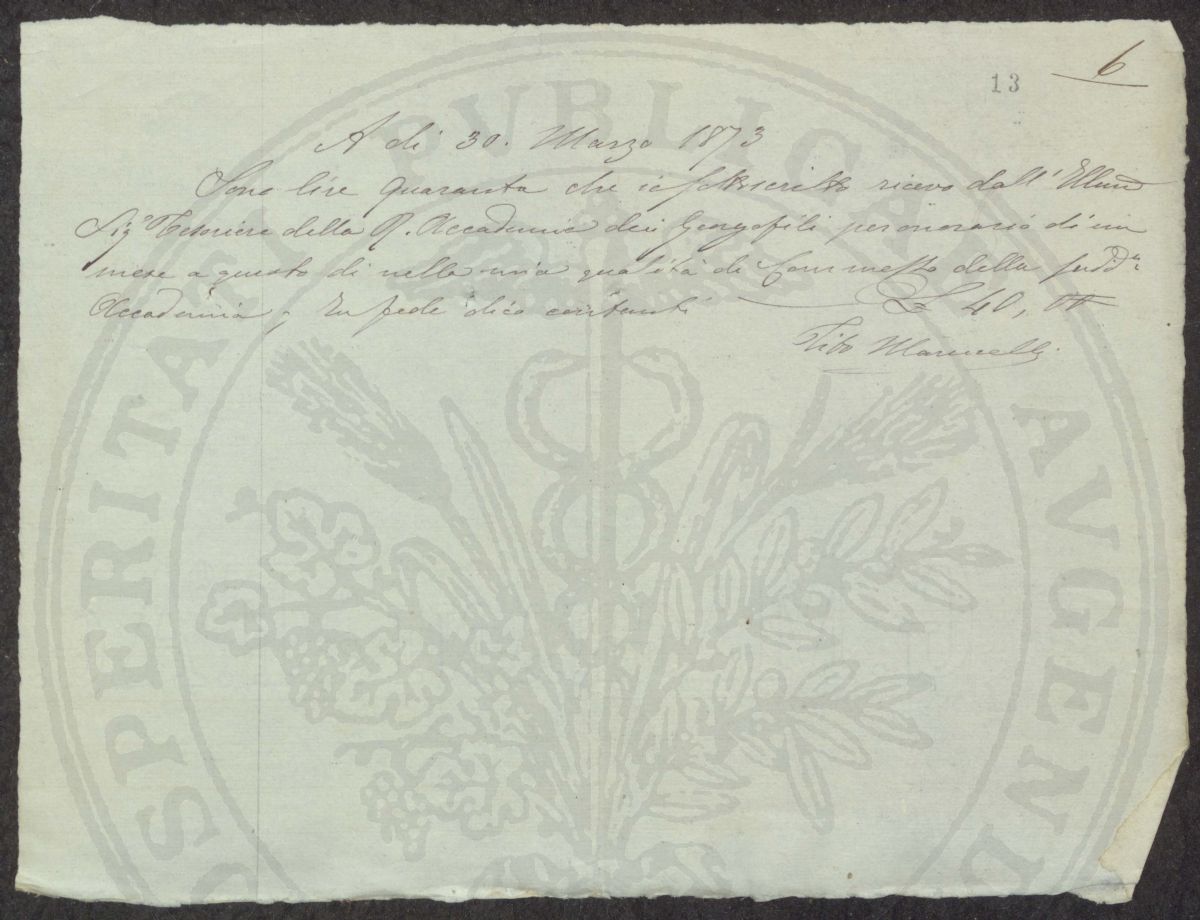 6
13
A dì 30. Marzo 1873
Sono lire quaranta che io sottoscritto ricevo dall' Illmo
Sigr Tesoriere della R. Accademia dei Georgofili per onorario di un
mese a questo dì nella mia qualità di Commesso della sudda
Accademia; In fede dico contanti £ 40,00
Tito Marucelli
PROSPERITATI PVBLICAE AVGENDAE